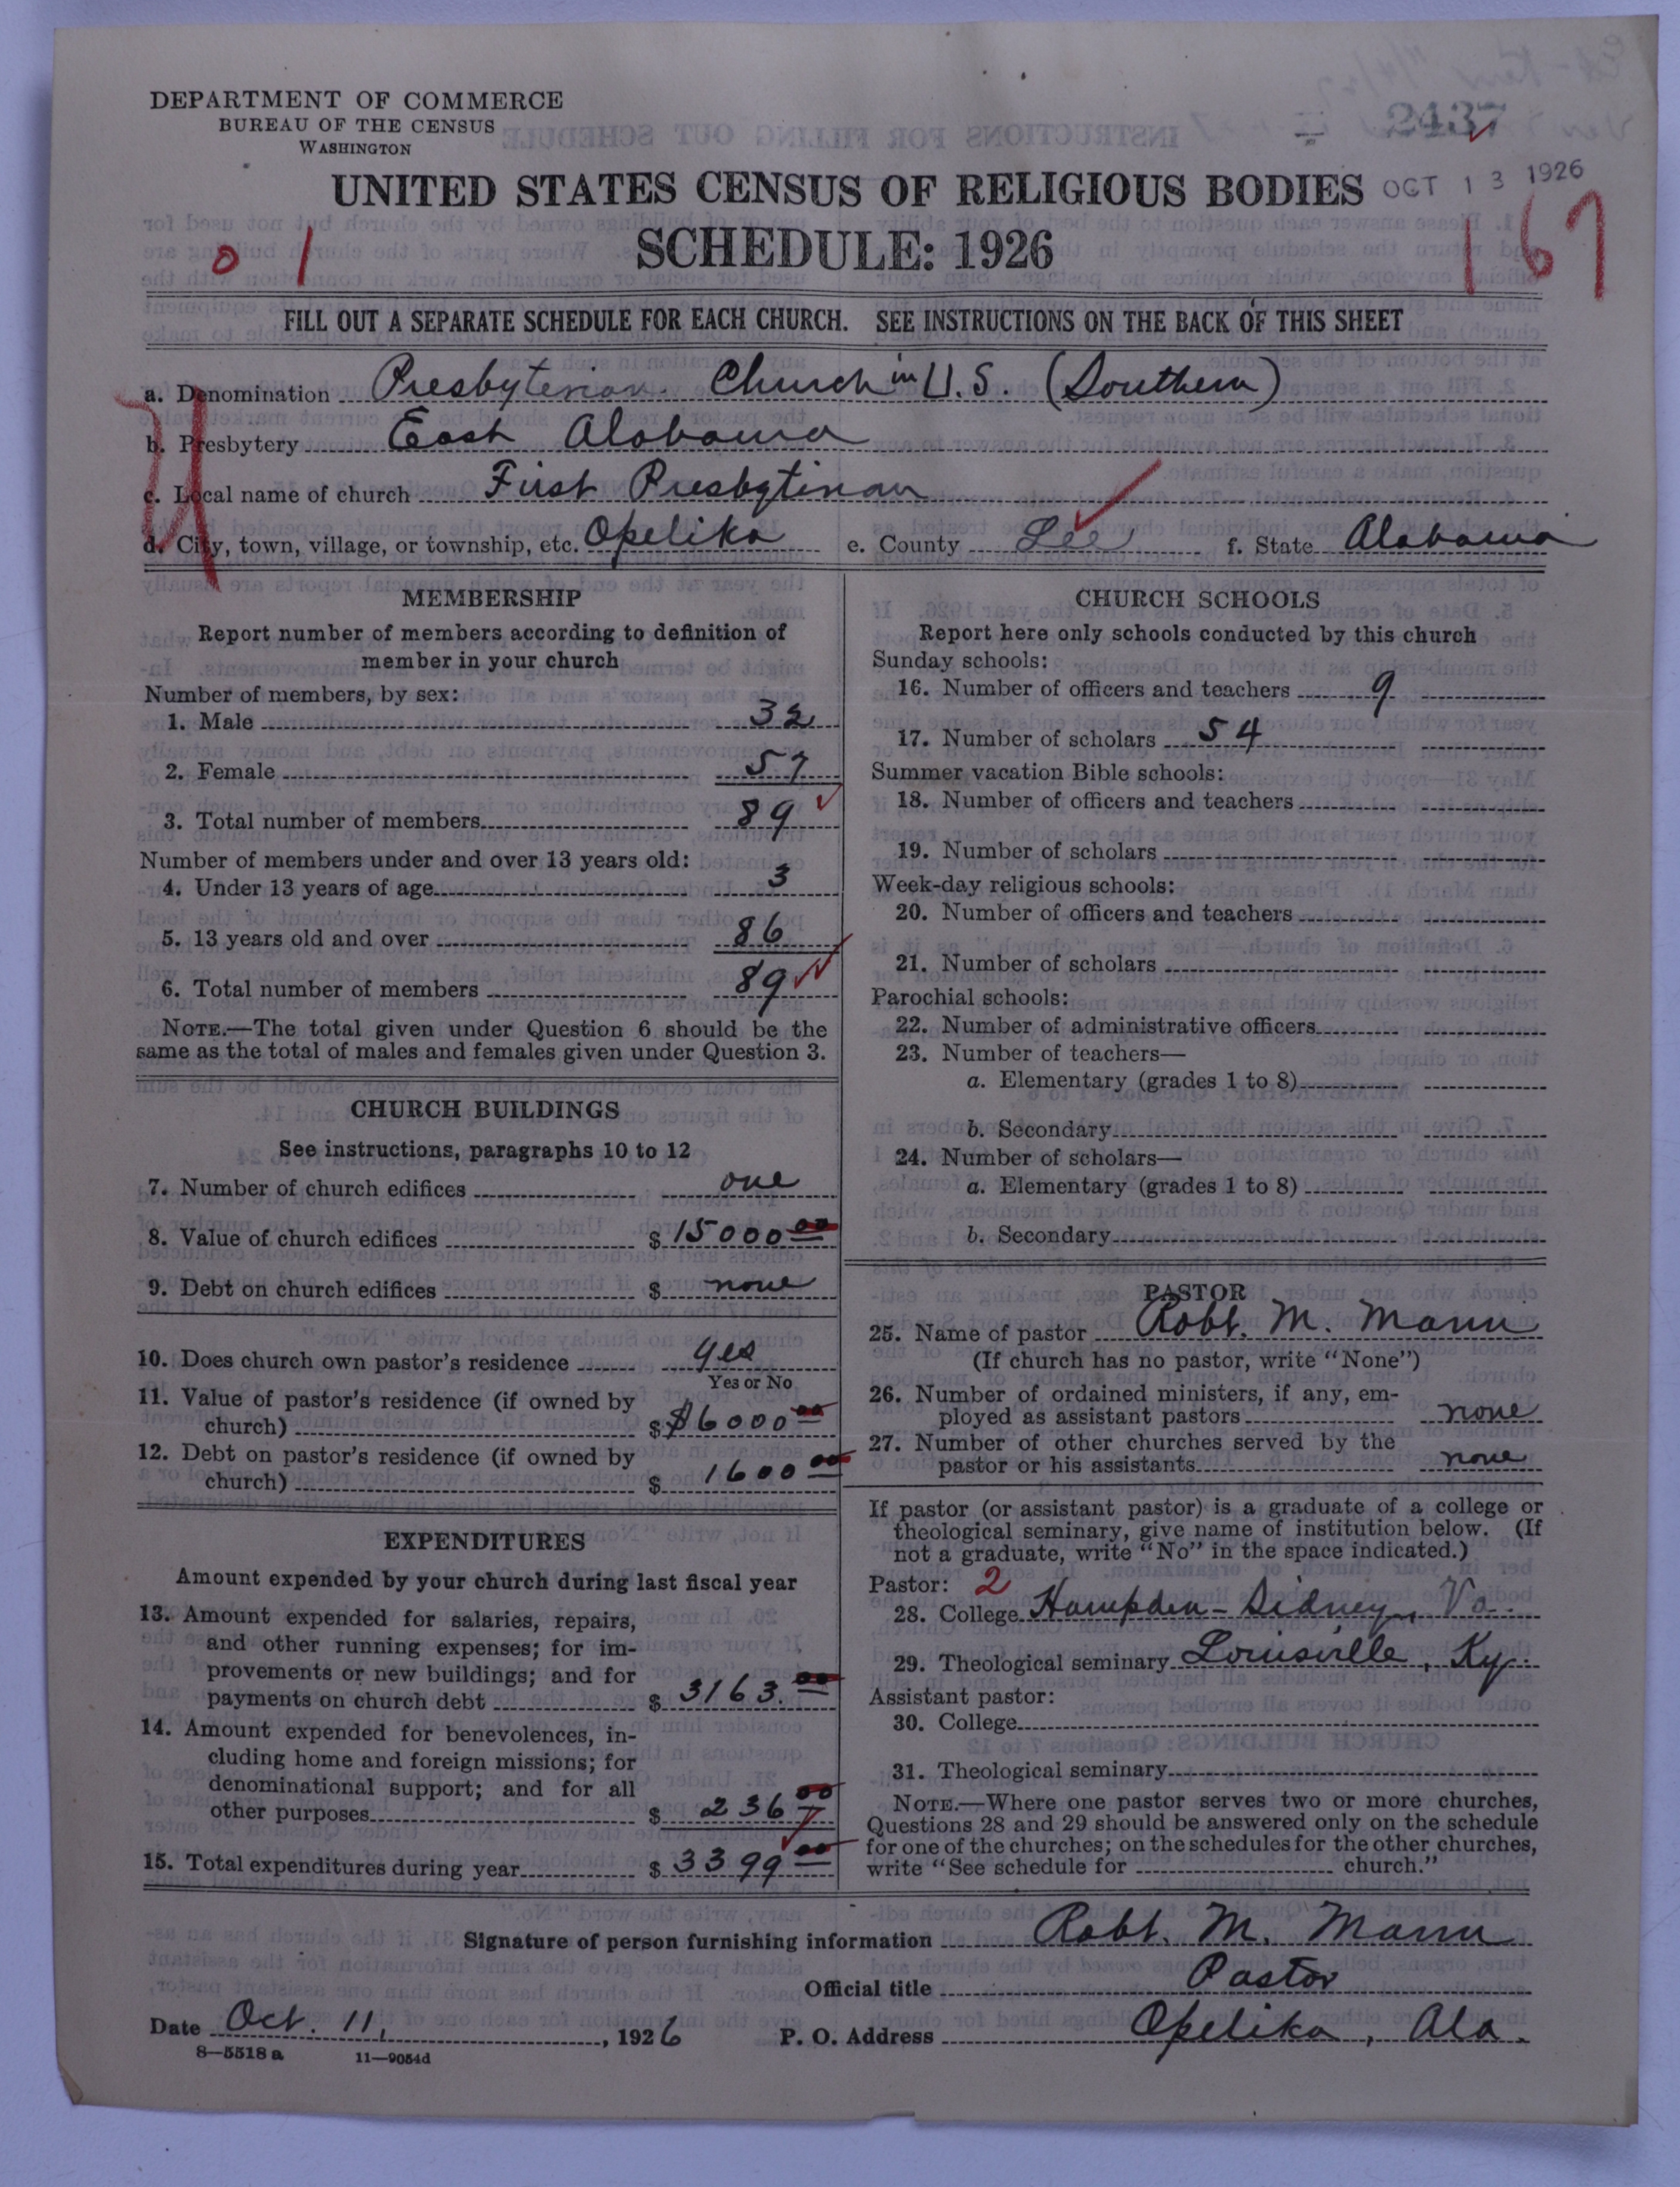 DEPARTMENT OF COMMERCE
BUREAU OF THE CENSUS
WASHINGTON
2437
UNITED STATES CENSUS OF RELIGIOUS BODIES
OCT 13 1926
SCHEDULE: 1926
0 1
167
FILL OUT A SEPARATE SCHEDULE FOR EACH CHURCH. SEE INSTRUCTIONS ON THE BACK OF THIS SHEET
a. Denomination Presbyterian Church in U.S. (Southern)
b. Presbytery East Alabama
c. Local name of church First Presbyterian
d. City, town, village, or township, etc. Opelika e. County Lee f. State Alabama
MEMBERSHIP
Report number of members according to definition of
member in your church
Number of members, by sex:
1. Male 32
2. Female 57
3. Total number of members 89
Number of members under and over 13 years old:
4. Under 13 years of age 3
5. 13 years old and over 86
6. Total number of members 89
NOTE.—The total given under Question 6 should be the
same as the total of males and females given under Question 3.
CHURCH BUILDINGS
See instructions, paragraphs 10 to 12
7. Number of church edifices one
8. Value of church edifices $ 15000 00
9. Debt on church edifices $ none
10. Does church own pastor's residence yes
Yes or No
11. Value of pastor's residence (if owned by
church) $ $6000 00
12. Debt on pastor's residence (if owned by
church) $ 1600 00
EXPENDITURES
Amount expended by your church during last fiscal year
13. Amount expended for salaries, repairs,
and other running expenses; for im-
provements or new buildings; and for
payments on church debt $ 3163.00
14. Amount expended for benevolences, in-
cluding home and foreign missions; for
denominational support; and for all
other purposes $ 236 00
15. Total expenditures during year $ 3399 00
CHURCH SCHOOLS
Report here only schools conducted by this church
Sunday schools:
16. Number of officers and teachers 9
17. Number of scholars 54
Summer vacation Bible schools:
18. Number of officers and teachers
19. Number of scholars
Week-day religious schools:
20. Number of officers and teachers
21. Number of scholars
Parochial schools:
22. Number of administrative officers
23. Number of teachers—
a. Elementary (grades 1 to 8)
b. Secondary
24. Number of scholars—
a. Elementary (grades 1 to 8)
b. Secondary
PASTOR
25. Name of pastor Robt. M. Mann
(If church has no pastor, write "None")
26. Number of ordained ministers, if any, em-
ployed as assistant pastors none
27. Number of other churches served by the
pastor or his assistants none
If pastor (or assistant pastor) is a graduate of a college or
theological seminary, give name of institution below. (If
not a graduate, write "No" in the space indicated.)
Pastor: 2
28. College Hampden-Sidney, Va.
29. Theological seminary Louisville, Ky.
Assistant pastor:
30. College
31. Theological seminary
NOTE.—Where one pastor serves two or more churches,
Questions 28 and 29 should be answered only on the schedule
for one of the churches; on the schedules for the other churches,
write "See schedule for church."
Signature of person furnishing information Robt. M. Mann
Official title Pastor
Date Oct. 11, 1926 P. O. Address Opelika, Ala.
8—5518 a 11—9054d